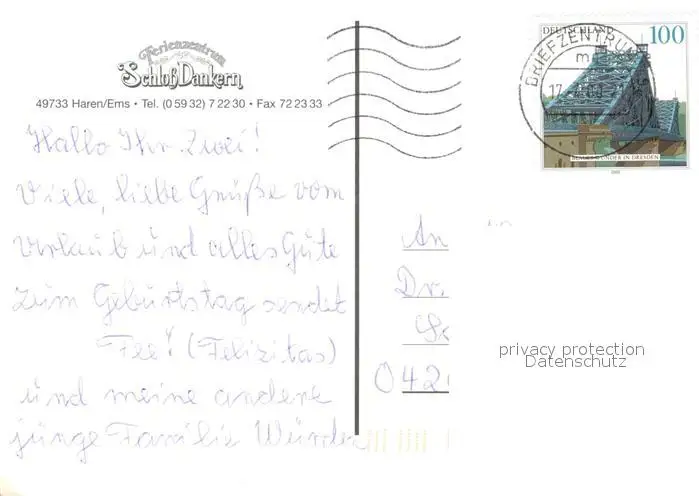 Ferienzentrum
Schloß Dankern
49733 Haren/Ems • Tel. (0 59 32) 7 22 30 • Fax 72 23 33
DEUTSCHLAND 100
BRIEFZENTRUM
BLAUES WUNDER IN DRESDEN
Hallo Ihr Zwei!
Viele, liebe Grüße vom
Urlaub und alles Gute
zum Geburtstag sendet
Fee! (Felizitas)
und meine andere
junge Familie
An
Dr.
042
privacy protection
Datenschutz